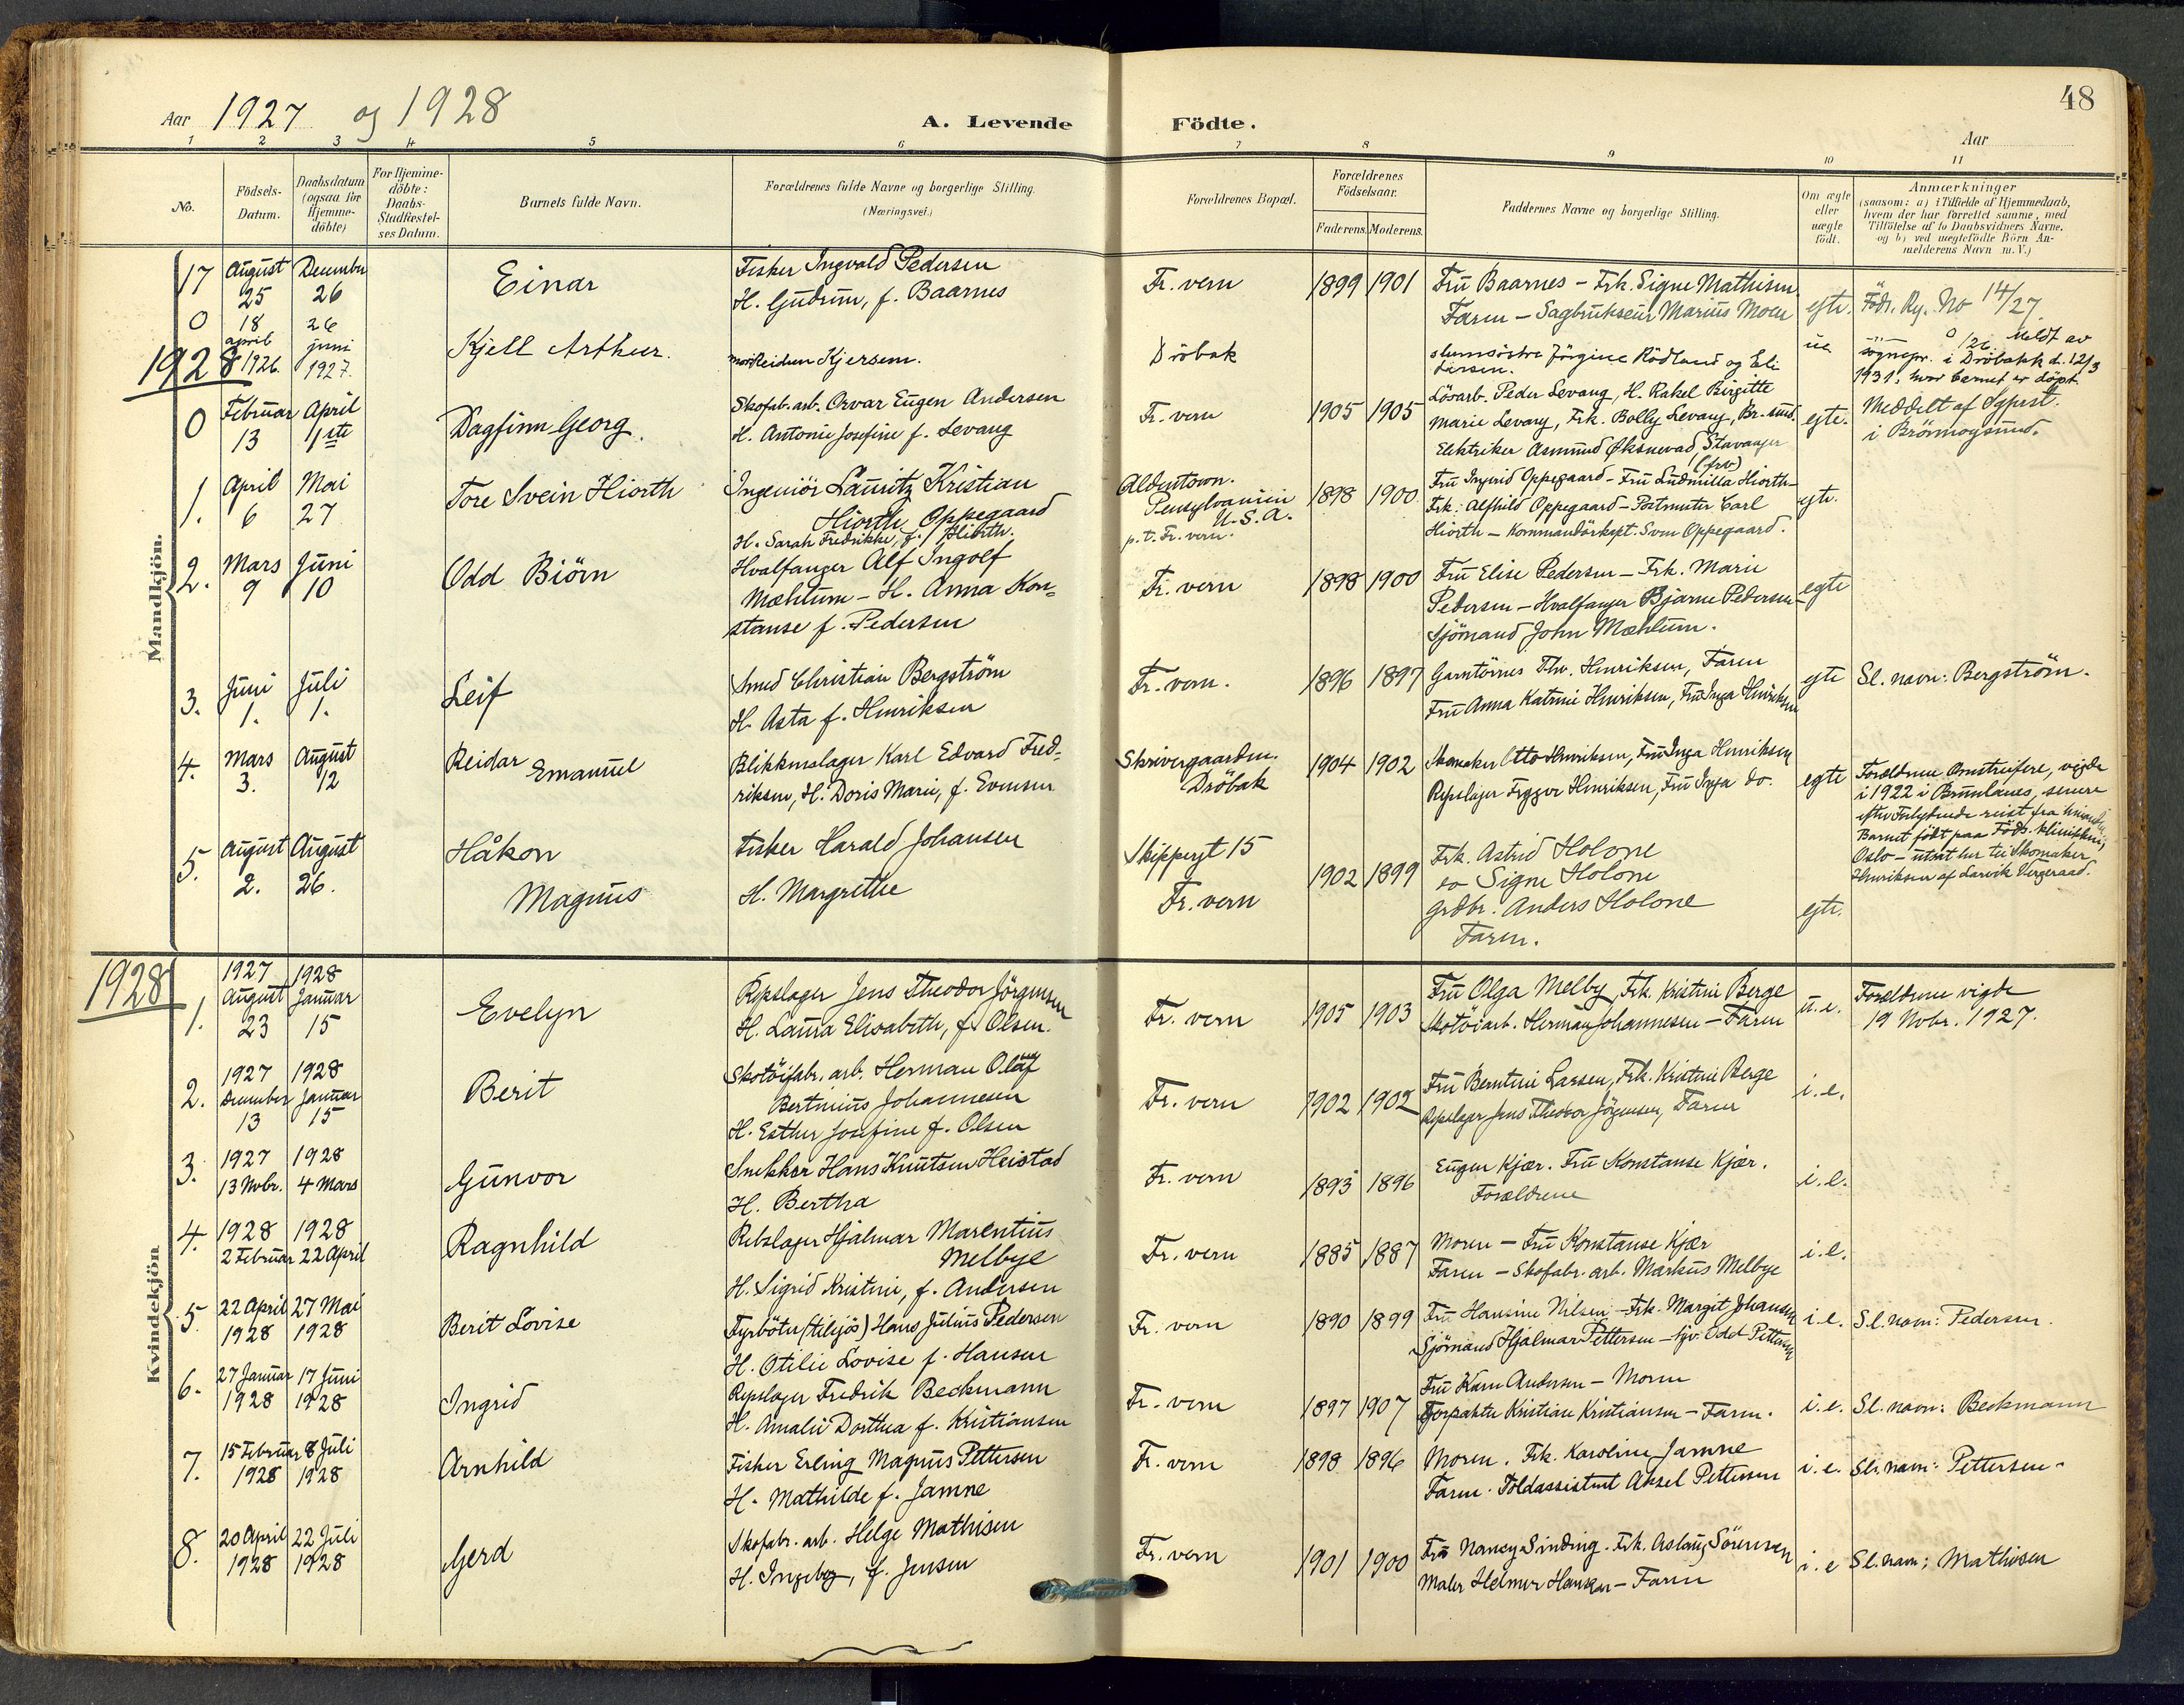 48
Aar 1927 og 1928
A. Levende Födte.
Aar
1 2 3 4 5 6 7 8 9 10 11
No.
Födsels-
Datum.
Daabsdatum
(ogsaa for
Hjemme-
döbte)
For Hjemme-
döbte:
Daabs-
Stadfæstel-
ses Datum.
Barnets fulde Navn.
Forældrenes fulde Navne og borgerlige Stilling.
(Næringsvei.)
Forældrenes Bopæl.
Forældrenes
Födselsaar.
Faderens. Moderens.
Faddernes Navne og borgerlige Stilling.
Om ægte
eller
uægte
födt.
Anmærkninger
(saasom: a) i Tilfælde af Hjemmedaab,
hvem der har forrettet samme, med
Tilföielse af to Daabsvidners Navne.
og b) ved uægtefödte Börn An-
melderens Navn m.V.)
Mandkjön.
17 August 25
December 26
Einar
Fisker Ingvald Pedersen
H. Gudrun, f. Baarnes
Fr. vern
1899 1901
Fru Baarnes – Frk. Signe Mathisen
Faren – Sagbrukseier Marius Moen
egte.
Föds. Rg. No 14/27
0 18 april 1926.
26 juni 1927.
Kjell Arthur.
mor Reidun Kjersem.
Dröbak
Jörgine Rödland og Eli
ue
0/26. Meldt av
sognepr. i Dröbakk d. 12/3
1931, hvor barnet er döpt.
1928
0 Februar 13
April 1ste
Dagfinn Georg.
Skofab. arb. Orvar Eugen Andersen
H. Antonie Josefine f. Levang
Fr. vern
1905 1905
Lösarb. Peder Levang, H. Rakel Birgitte
Marie Levang, Frk. Bolly Levang, Br.sund.
Elektriker Asmund Øksnevad Stavanger
egte.
Meddelt af Sgprst.
i Brönnøysund.
1. April 6
Mai 27
Tore Svein Hiorth
Ingeniör Lauritz Kristian
Hiorth Oppegaard
H. Sarah Fredrikke, f. Hiorth.
Aldentown.
Pensylvanien
U.S.A.
p.t. Fr. vern.
1898 1900
Fru Ingrid Oppegaard – Fru Ludmilla Hiorth –
Frk. Alfhild Oppegaard – Postmester Carl
Hiorth – Kommandörkapt. Sven Oppegaard.
egte.
2. Mars 9
Juni 10
Odd Biörn
Hvalfanger Alf Ingolf
Mæhlum – H. Anna Kon=
stanse f. Pedersen
Fr. vern
1898 1900
Fru Elise Pedersen – Frk. Marie
Pedersen – Hvalfanger Bjarne Pedersen –
Sjömand John Mæhlum.
egte
3. Juni 1.
Juli 1.
Leif
Smed Christian Bergström
H. Asta f. Henriksen
Fr. vern.
1896 1897
Garntörnes Thv. Henriksen, Faren
Fru Anna Katrine Henriksen, Fru Inga Henriksen
egte
Sl. navn: Bergström.
4. Mars 3.
August 12
Reidar Emanuel
Blikkenslager Karl Edvard Fred=
riksen, H. Doris Marie, f. Evensen
Skrivergaarden.
Dröbak
1904 1902
Skomaker Otto Henriksen, Fru Inga Henriksen
Repslager Trygve Henriksen, Fru Inga do.
egte
Forældrene Omstreifere, vigde
i 1922 i Brunlanes, senere
efter Forlydende reist fra hinanden
Barnet födt paa Föds. klinikken,
Oslo – utsat her til Skomaker
Henriksen af Larvik Vergeraad.
5. August 2.
August 26.
Håkon
Magnus
Fisker Harald Johansen
H. Margrethe
Skippergt 15
Fr. vern
1902 1899
Frk. Astrid Holone
do Signe Holone
Grdbr. Anders Holone
Faren.
egte.
1928
Kvindekjön
1. 1927 August 23
1928 Januar 15
Evelyn
Repslager Jens Theodor Jörgensen
H. Laura Elisabeth, f. Olsen.
Fr. vern
1905 1903
Fru Olga Melby, Frk. Kristine Berge
Skotöiarb. Herman Johannesen – Faren
u.e.
Forældrene vigde
19 Novbr. 1927.
2. 1927 December 13
1928 Januar 15
Berit
Skotöifabr. arb. Herman Olaf
Bertinius Johannesen
H. Esther Josefine f. Olsen
Fr. vern
1902 1902
Fru Berntine Larsen, Frk. Kristine Berge
Repslager Jens Theodor Jörgensen, Faren
i.e.
3. 1927 13 Nvbr.
1928 4 Mars
Gunvor
Snekker Hans Knutsen Heistad
H. Bertha
Fr. vern
1893 1896
Eugen Kjær. Fru Konstanse Kjær.
Forældrene
i.e.
4. 1928 2 Februar
1928 22 April
Ragnhild
Rebslager Hjalmar Marentius
Melbye
H. Sigrid Kristine, f. Andersen
Fr. vern
1885 1887
Moren – Fru Konstanse Kjær
Faren – Skofabr. arb. Markus Melbye
i.e.
5 22 April 1928
27 Mai 1928
Berit Lovise
Fyrböter (tilsjös) Hans Julius Pedersen
H. Otilie Lovise f. Hansen
Fr. vern
1890 1899
Fru Hansine Nilsen – Frk. Margit Johansen
Sjömand Hjalmar Pettersen – Odd Pettersen
i.e.
Sl. navn: Pedersen.
6. 27 Januar 1928
17 Juni 1928
Ingrid
Repslager Fredrik Beckmann
H. Amalie Dorthea f. Kristiansen
Fr. vern
1897 1907
Fru Karn Andersen – Moren
Forpakter Kristian Kristiansen – Faren.
i.e.
Sl. navn: Beckmann
7. 15 Februar 1928
8 Juli 1928
Arnhild
Fisker Erling Magnus Pettersen
H. Mathilde f. Jamne
Fr. vern
1898 1896
Moren. Frk. Karoline Jamne
Faren. Toldassistent Aksel Pettersen
i.e.
Sl. navn: Pettersen.
8. 20 April 1928
22 Juli 1928
Gerd
Skofabr. arb. Helge Mathisen
H. Ingeborg, f. Jensen
Fr. vern
1901 1900
Fru Nancy Sinding. Frk. Aslaug Sörensen
Maler Helmer Hansen – Faren
i.e
Sl. navn: Mathisen